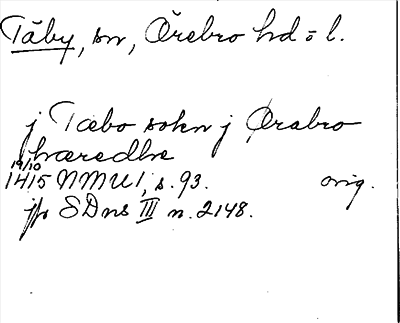 Täby, sn, Örebro hd o l.
j Tæbo sokn j Ørabro
hæredhe
19/10
1415 NMU 1, s. 93. orig.
jfr SDns III n. 2148.